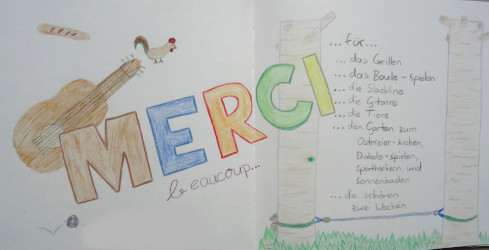 MERCI
beaucoup...
...für...
...das Grillen
...das Boule-Spielen
...die Slackline
...die Gitarre
...die Tiere
...den Garten zum
Ostereier-suchen,
Diabolo-spielen,
Sporthockern und
Sonnenbaden
...die schönen
zwei Wochen